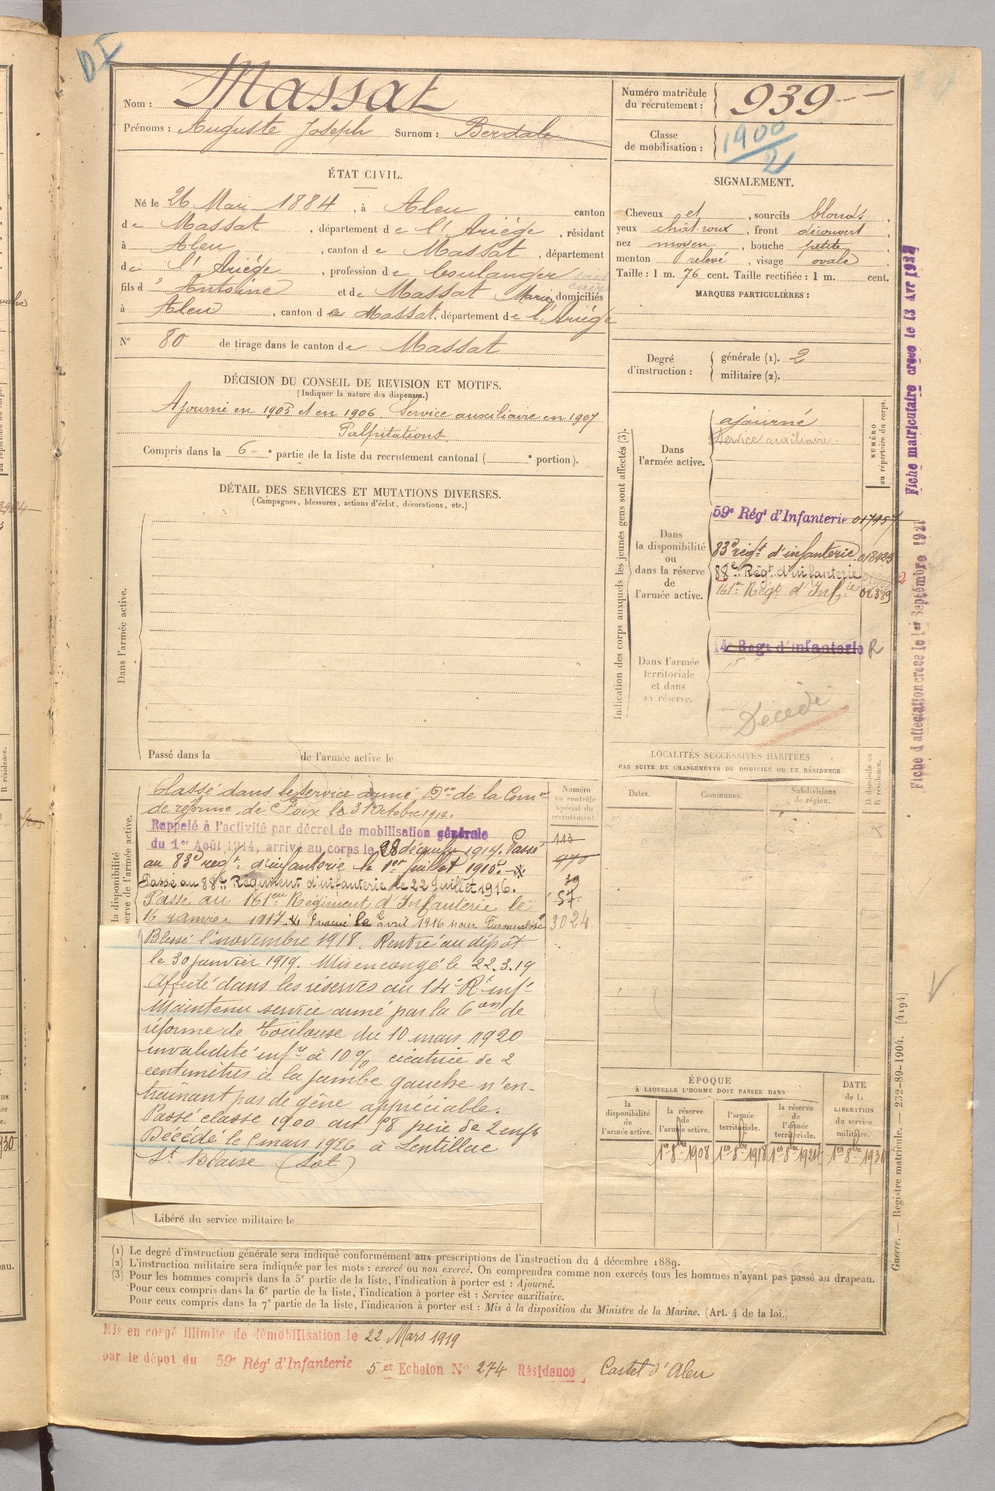 DI
Nom : Massat
Prénoms : Auguste Joseph Surnom : Berdale
Numéro matricule du recrutement : 939
Classe de mobilisation : 1900/2
ÉTAT CIVIL.
Né le 26 Mau 1884, à Aleu canton
de Massat, département de l'Ariége, résidant
à Aleu, canton de Massat, département
de l'Ariége, profession de boulanger
fils d'Antoine et de Massat Marie, domiciliés
à Aleu, canton de Massat, département de l'Ariége
N° 80 de tirage dans le canton de Massat
SIGNALEMENT.
Cheveux et, sourcils blonds,
yeux chat roux, front découvert
nez moyen, bouche petite,
menton relevé, visage ovale
Taille : 1 m. 76 cent. Taille rectifiée : 1 m. cent.
MARQUES PARTICULIÈRES :
Degré d'instruction : générale (1). 2
militaire (2).
DÉCISION DU CONSEIL DE REVISION ET MOTIFS.
(Indiquer la nature des dispenses.)
Ajourné en 1905 et en 1906. Service auxiliaire en 1907
Palpitations
Compris dans la 6e partie de la liste du recrutement cantonal ( e portion).
DÉTAIL DES SERVICES ET MUTATIONS DIVERSES.
(Campagnes, blessures, actions d'éclat, décorations, etc.)
Dans l'armée active.
Passé dans la de l'armée active le
Indication des corps auxquels les jeunes gens sont affectés (3).
NUMÉRO au répertoire du corps.
Dans l'armée active.
ajourné
Service auxiliaire
Dans la disponibilité ou dans la réserve de l'armée active.
59e Régt d'Infanterie 017957
83e régt d'infanterie 018923
88e Régt d'infanterie
161me Régt d'Infie 01389
Dans l'armée territoriale et dans sa réserve.
14e Régt d'Infanterie R
Décédé
LOCALITÉS SUCCESSIVES HABITÉES
PAR SUITE DE CHANGEMENTS DE DOMICILE OU DE RÉSIDENCE.
Dates. Communes. Subdivisions de région. D domicile ou R résidence.
Numéro au contrôle spécial du recrutement
113
970
39
57
3024
Classé dans le service armé Don de la Comon
de réforme de Foix le 31 octobre 1914.
Rappelé à l'activité par décret de mobilisation générale
du 1er Août 1914, arrivé au corps le 28 décembre 1914. Passé
au 83e régt d'infanterie le 1er juillet 1915.
Passé au 88e Régiment d'infanterie le 22 juillet 1916.
Passé au 161me Régiment d'Infanterie le
16 janvier 1917.
Blessé 1 novembre 1918. Rentré au dépôt
le 30 janvier 1919. Mis en congé le 22.3.19
Affecté dans les réserves au 14e R inf
Maintenu service armé par la 6e Con de
réforme de Toulouse du 10 mars 1920
invalidité infre à 10% cicatrice de 2
centimètres à la jambe gauche n'en-
trainant pas de gêne appréciable.
Passé classe 1900 art 58 père de 2 enfts
Décédé le mars 1926 à Lentillac
St Blaise (Lot)
Libéré du service militaire le
ÉPOQUE
À LAQUELLE L'HOMME DOIT PASSER DANS
la disponibilité de l'armée active. la réserve de l'armée active. l'armée territoriale. la réserve de l'armée territoriale. DATE de la LIBÉRATION du service militaire.
1er 8bre 1908 1er 8bre 1918 1er 8bre 1924 1er 8bre 1930
(1) Le degré d'instruction générale sera indiqué conformément aux prescriptions de l'instruction du 4 décembre 1889.
(2) L'instruction militaire sera indiquée par les mots : exercé ou non exercé. On comprendra comme non exercés tous les hommes n'ayant pas passé au drapeau.
(3) Pour les hommes compris dans la 5e partie de la liste, l'indication à porter est : Ajourné.
Pour ceux compris dans la 6e partie de la liste, l'indication à porter est : Service auxiliaire.
Pour ceux compris dans la 7e partie de la liste, l'indication à porter est : Mis à la disposition du Ministre de la Marine. (Art. 4 de la loi.)
Mis en congé illimité de démobilisation le 22 Mars 1919
par le dépôt du 59e Régt d'Infanterie 5e Echelon N° 274 Résidence Castet d'Aleu
Fiche matriculaire créée le 13 Avr
Fiche d'affectation créée le 1er Septembre
Guerre. — Registre matricule. — 232-89-1904. [4194]